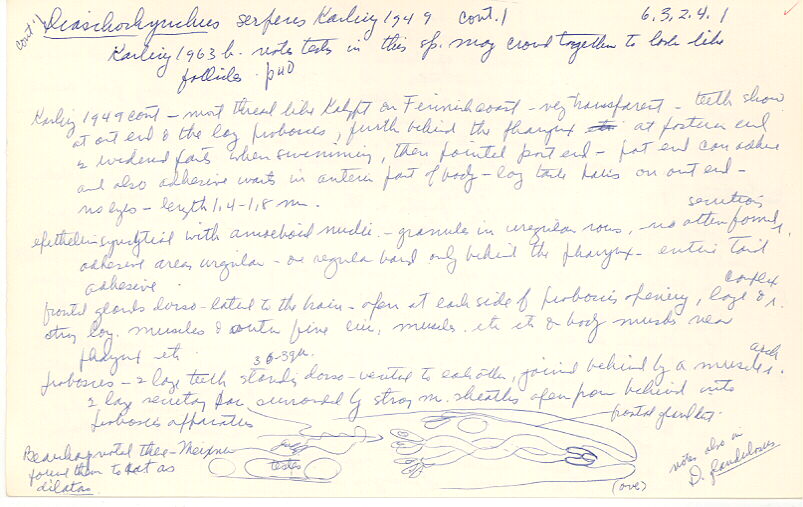 cont. Diaschorhynchus serpens Karling 1949 cont. 6.3.2.4.1
Karling 1963 b. notes testes in this sp. may crowd together to look like
follicles. p 40
Karling 1949 cont - most thread like Kalypt on Finnish coast - very transparent - teeth show
at ant end & the long proboscis, further behind the pharynx at posterior end
2 widened parts when swimming, then pointed post end - post end can adhere
and also adhesive warts in anterior part of body - long tactile hairs on ant end -
no eyes - length 1,4-1,8 mm.
epithelium syncytial with amoeboid nuclei - granules in irregular rows, no secretions
adhesive areas irregular - one regular band only behind the pharynx - entire tail
adhesive
frontal glands dorso-lateral to the brain - open at each side of proboscis opening, large &
strong long. muscles & outer fine circ. muscles. etc of body muscles near
pharynx etc. 36-39µ.
proboscis - 2 large teeth standing dorso-ventral to each other, joined behind by a muscle arch.
2 large secretory sac surrounded by strong m. sheaths open from behind into
proboscis apparatus
frontal gland
Beauchamp noted these - Meixner
found them to act as
dilators
testes
(ove)
notes also in
D. glandulosus